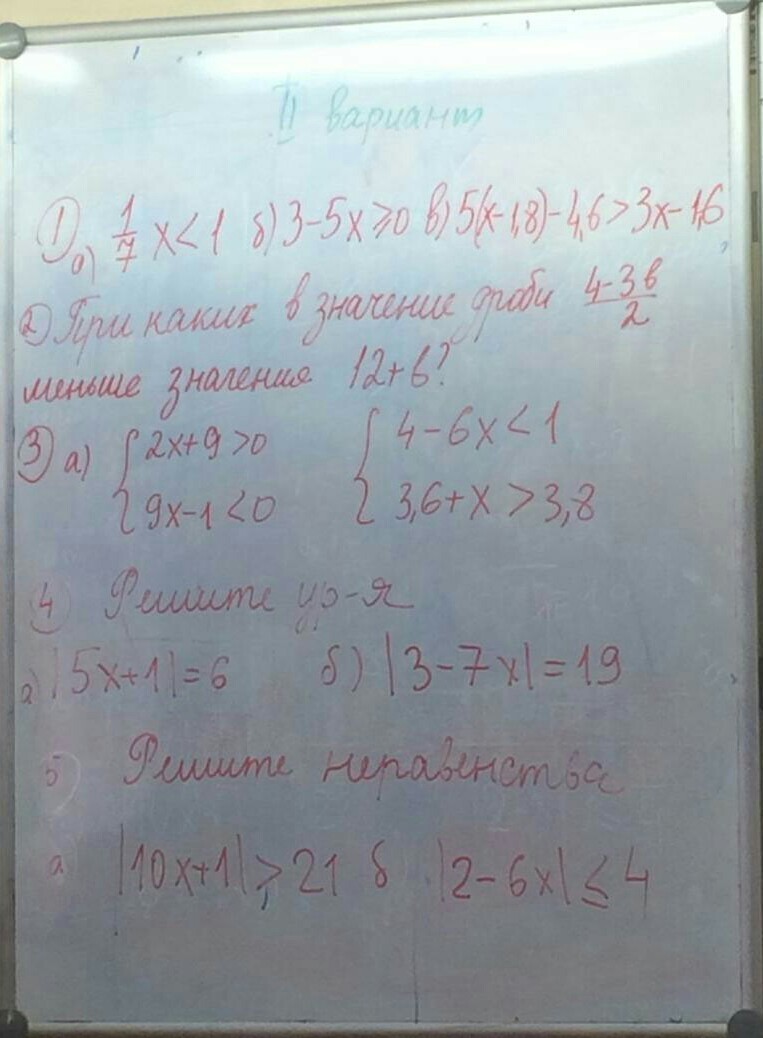 II вариант
① а) 1/7 x < 1 б) 3-5x ⩾ 0 в) 5(x-1,8)-4,6 > 3x-1,6
② При каких в значение дроби (4-3в)/2
меньше значения 12+в?
③ а) { 2x+9 > 0 { 4-6x < 1
9x-1 < 0 3,6+x > 3,8
4 Решите ур-я
а) |5x+1| = 6 б) |3-7x| = 19
5) Решите неравенства
а |10x+1| ⩾ 21 б |2-6x| ≤ 4